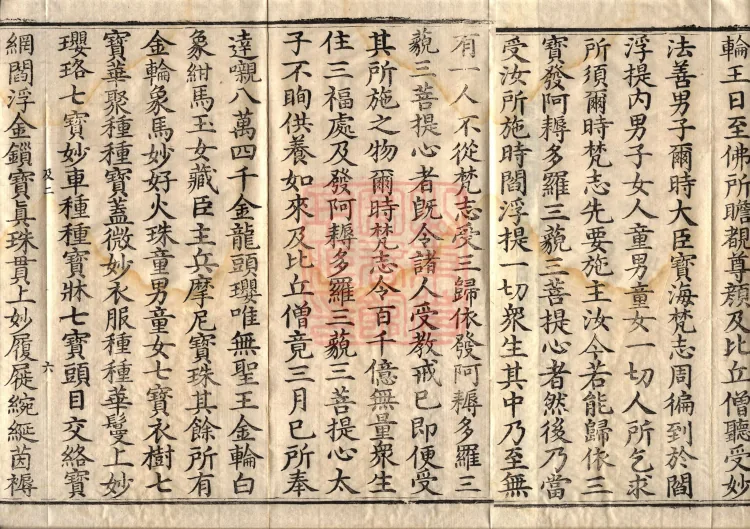 輪王日至佛所瞻覩尊顔及比丘僧聽受妙
法善男子爾時大臣寶海梵志周徧到於閻
浮提內男子女人童男童女一切人所乞求
所須爾時梵志先要施主汝今若能歸依三
寶發阿耨多羅三藐三菩提心者然後乃當
受汝所施時閻浮提一切衆生其中乃至無
有一人不從梵志受三歸依發阿耨多羅三
藐三菩提心者旣令諸人受教戒已即便受
其所施之物爾時梵志令百千億無量衆生
住三福處及發阿耨多羅三藐三菩提心太
子不眴供養如來及比丘僧竟三月已所奉
達嚫八萬四千金龍頭瓔唯無聖王金輪白
象紺馬玉女藏臣主兵摩尼寶珠其餘所有
金輪象馬妙好火珠童男童女七寶衣樹七
寶華聚種種寶蓋微妙衣服種種華鬘上妙
瓔珞七寶妙車種種寶牀七寶頭目交絡寶
及二 六
網閻浮金鎖寶眞珠貫上妙履屣綩綖茵褥